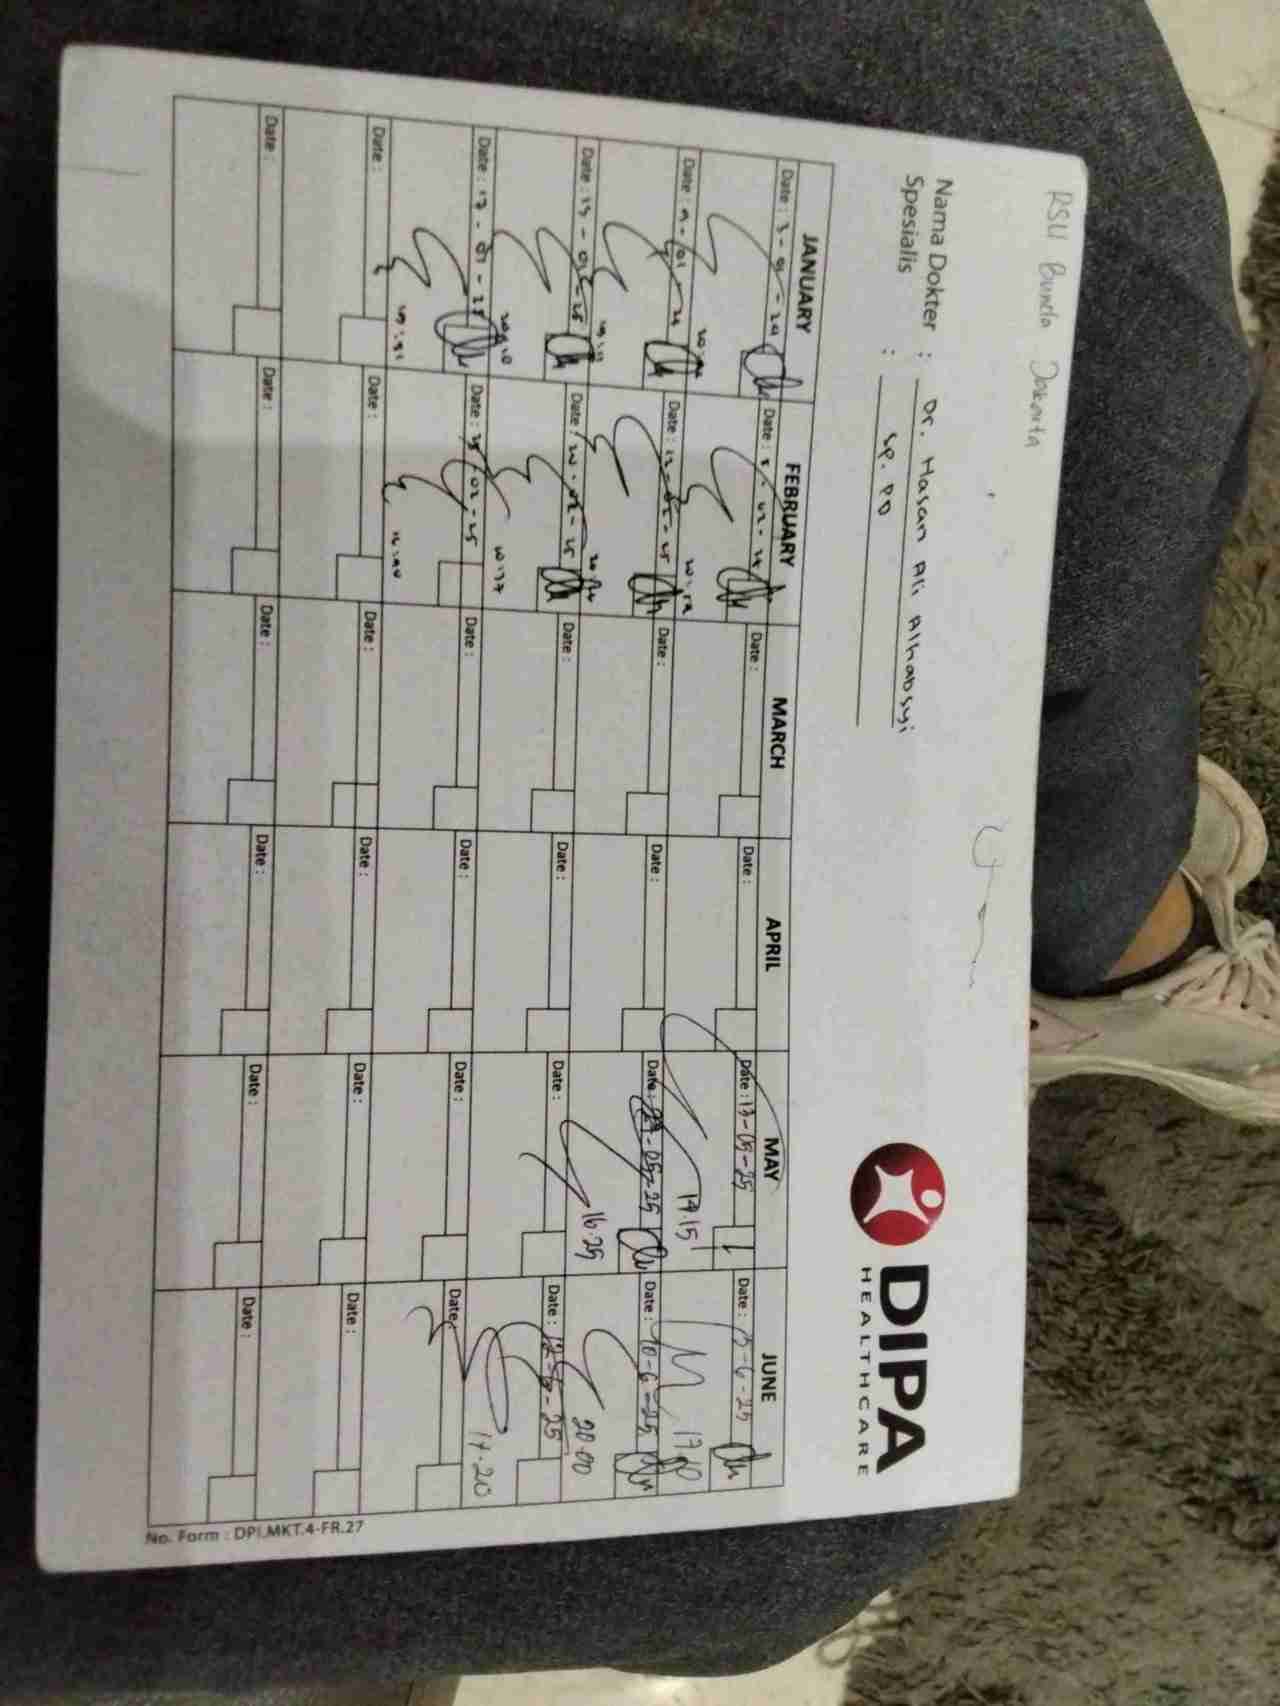 RSU Bunda Jakarta
DIPA
HEALTHCARE
Nama Dokter : Dr. Hasan Ali Alhabsyi
Spesialis : SP. PD
JANUARY FEBRUARY MARCH APRIL MAY JUNE
Date : 3 - 01 - 24 Date : 02 Date : Date : Date : 17-05-25 Date : 6-25
14.15 17.10
Date : 9 - 01 - 24 Date : 13 - 02 - 25 Date : Date : Date : 05-25 Date : 10-6-25
16.25 20.00
Date : 13 - 01 - 25 Date : 20 - 02 - 25 Date : Date : Date : Date : 12 25
17.20
Date : 17 - 01 - 25 Date : 25 - 02 - 25 Date : Date : Date : Date :
Date : Date : Date : Date : Date : Date :
Date : Date : Date : Date : Date : Date :
No. Form : DPI.MKT.4-FR.27